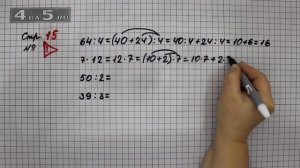 4DA5.RU
Стр. 15
№9
64:4=(40+24):4=40:4+24:4=10+6=16
7·12=12·7=(10+2)·7=10·7+2·
50:2=
39:3=